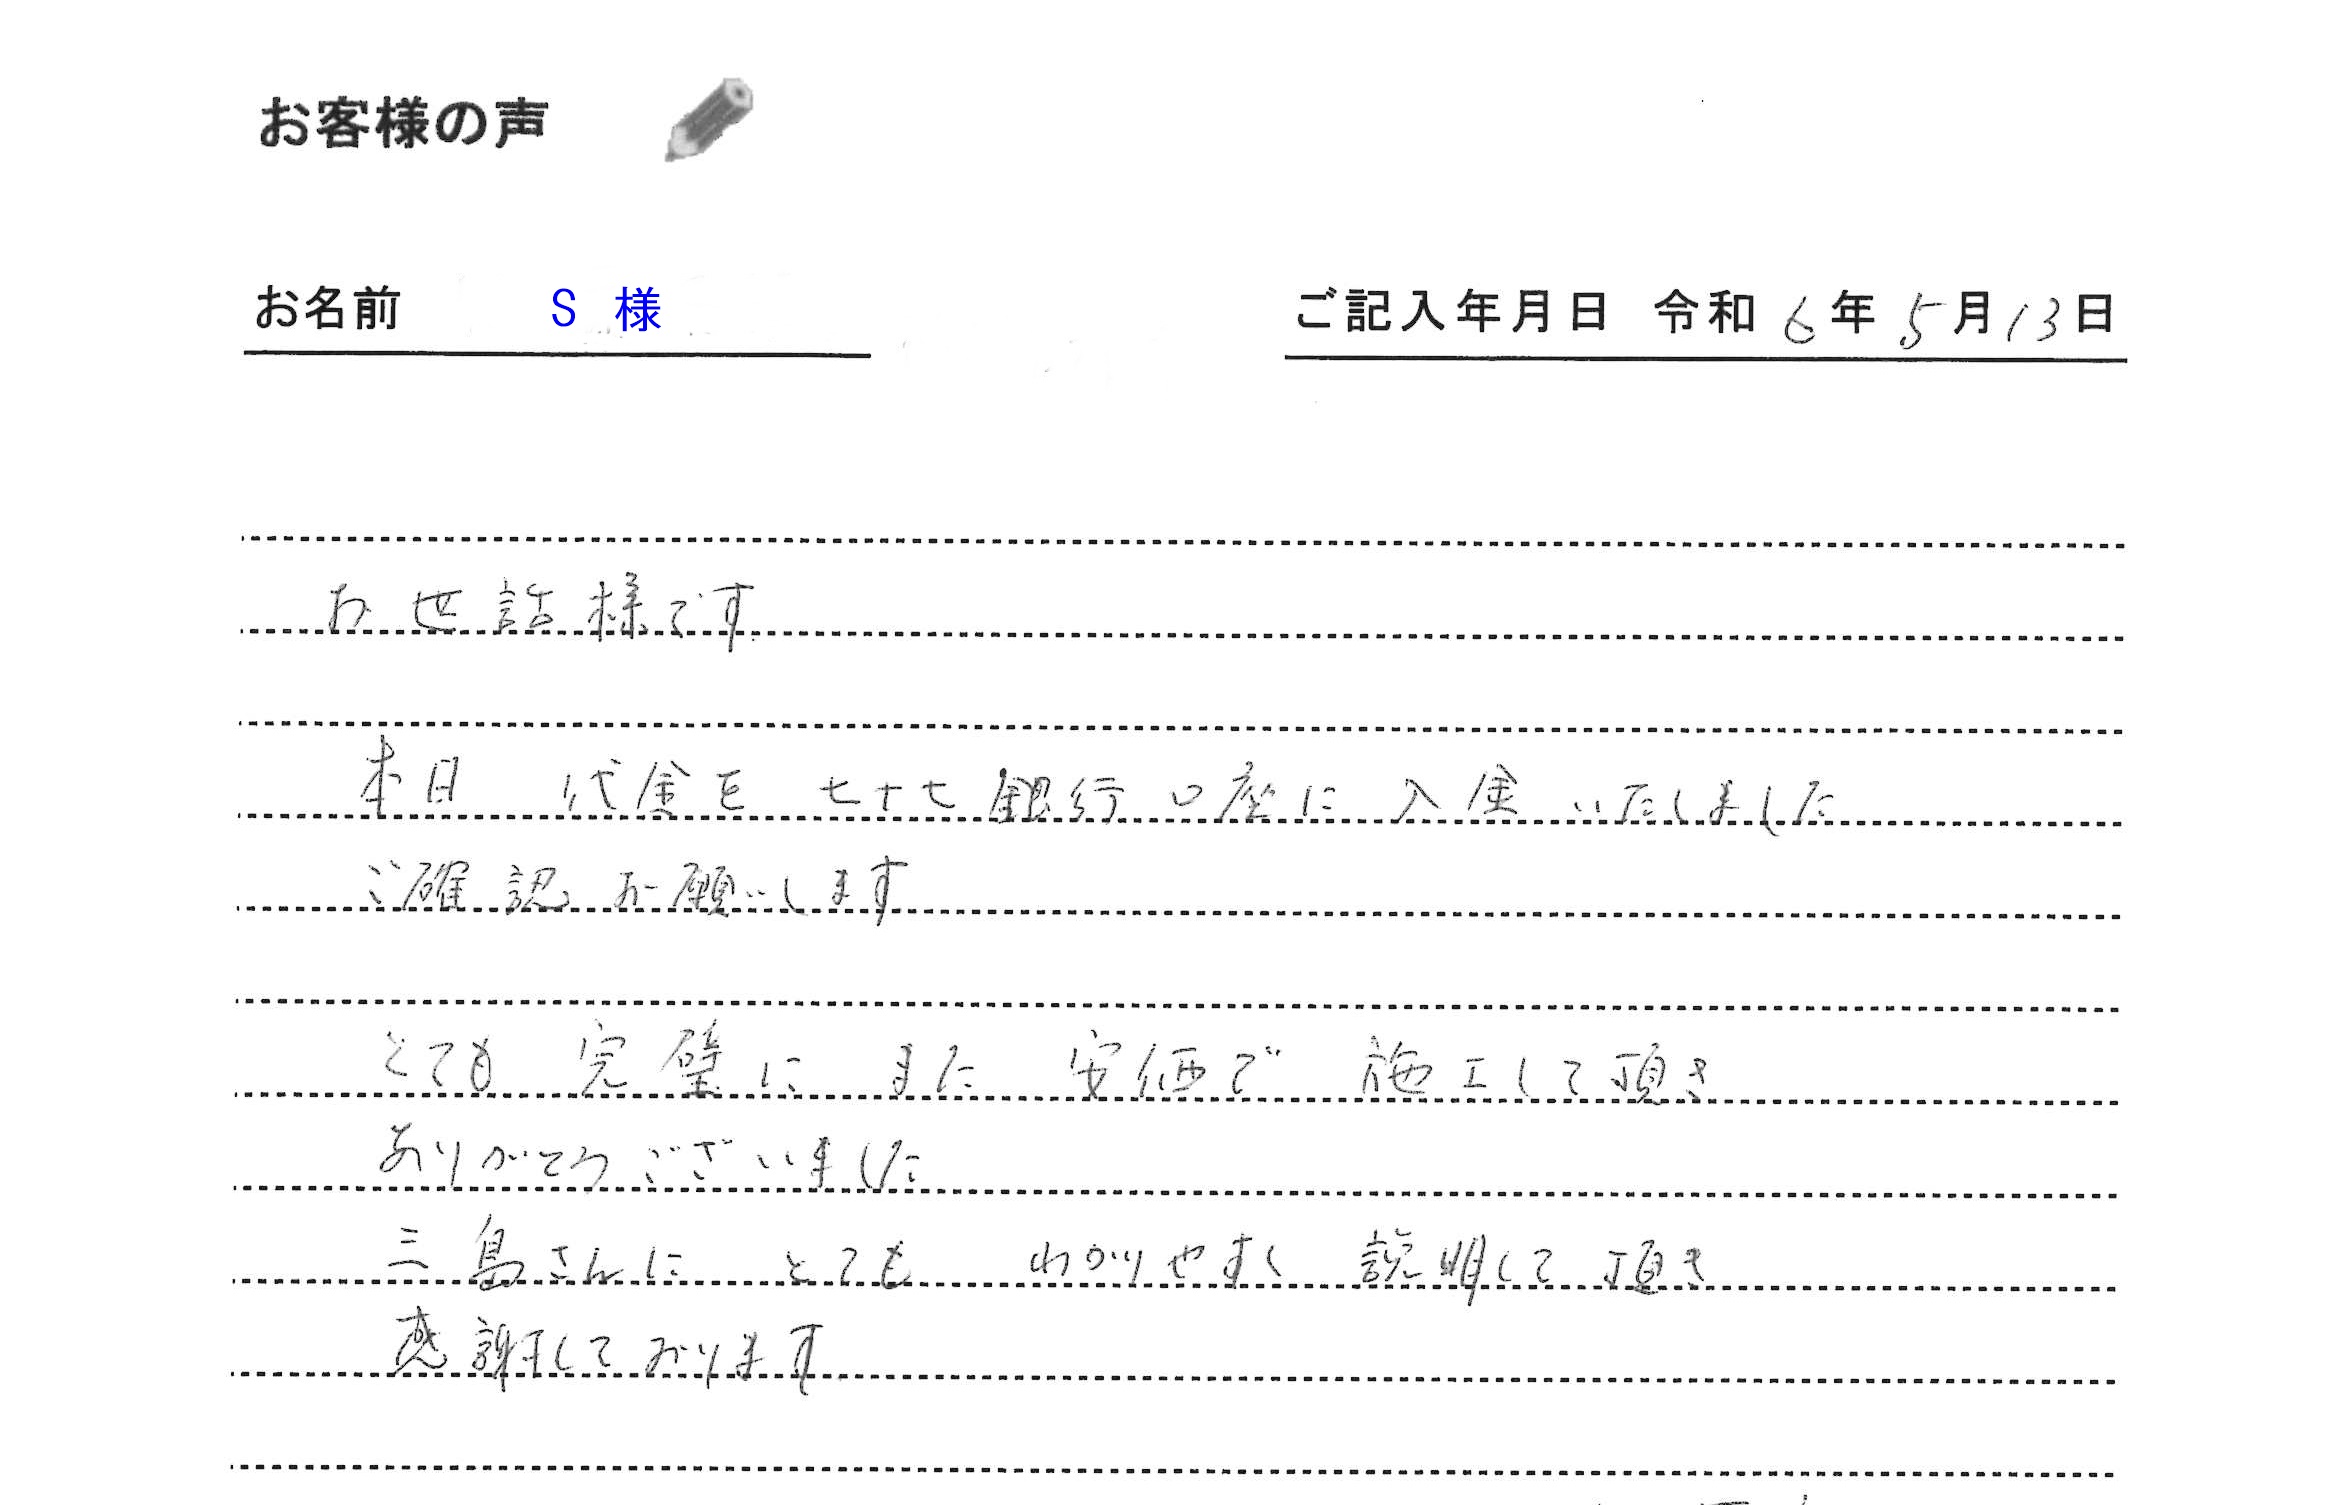 お客様の声
お名前 S 様
ご記入年月日 令和 6 年 5 月 13 日
お世話様です
本日 代金を 七十七銀行口座に 入金いたしました
ご確認お願いします
とても 完璧に また 安価で 施工して頂き
ありがとうございました
三島さんに とても わかりやすく 説明して頂き
感謝しております